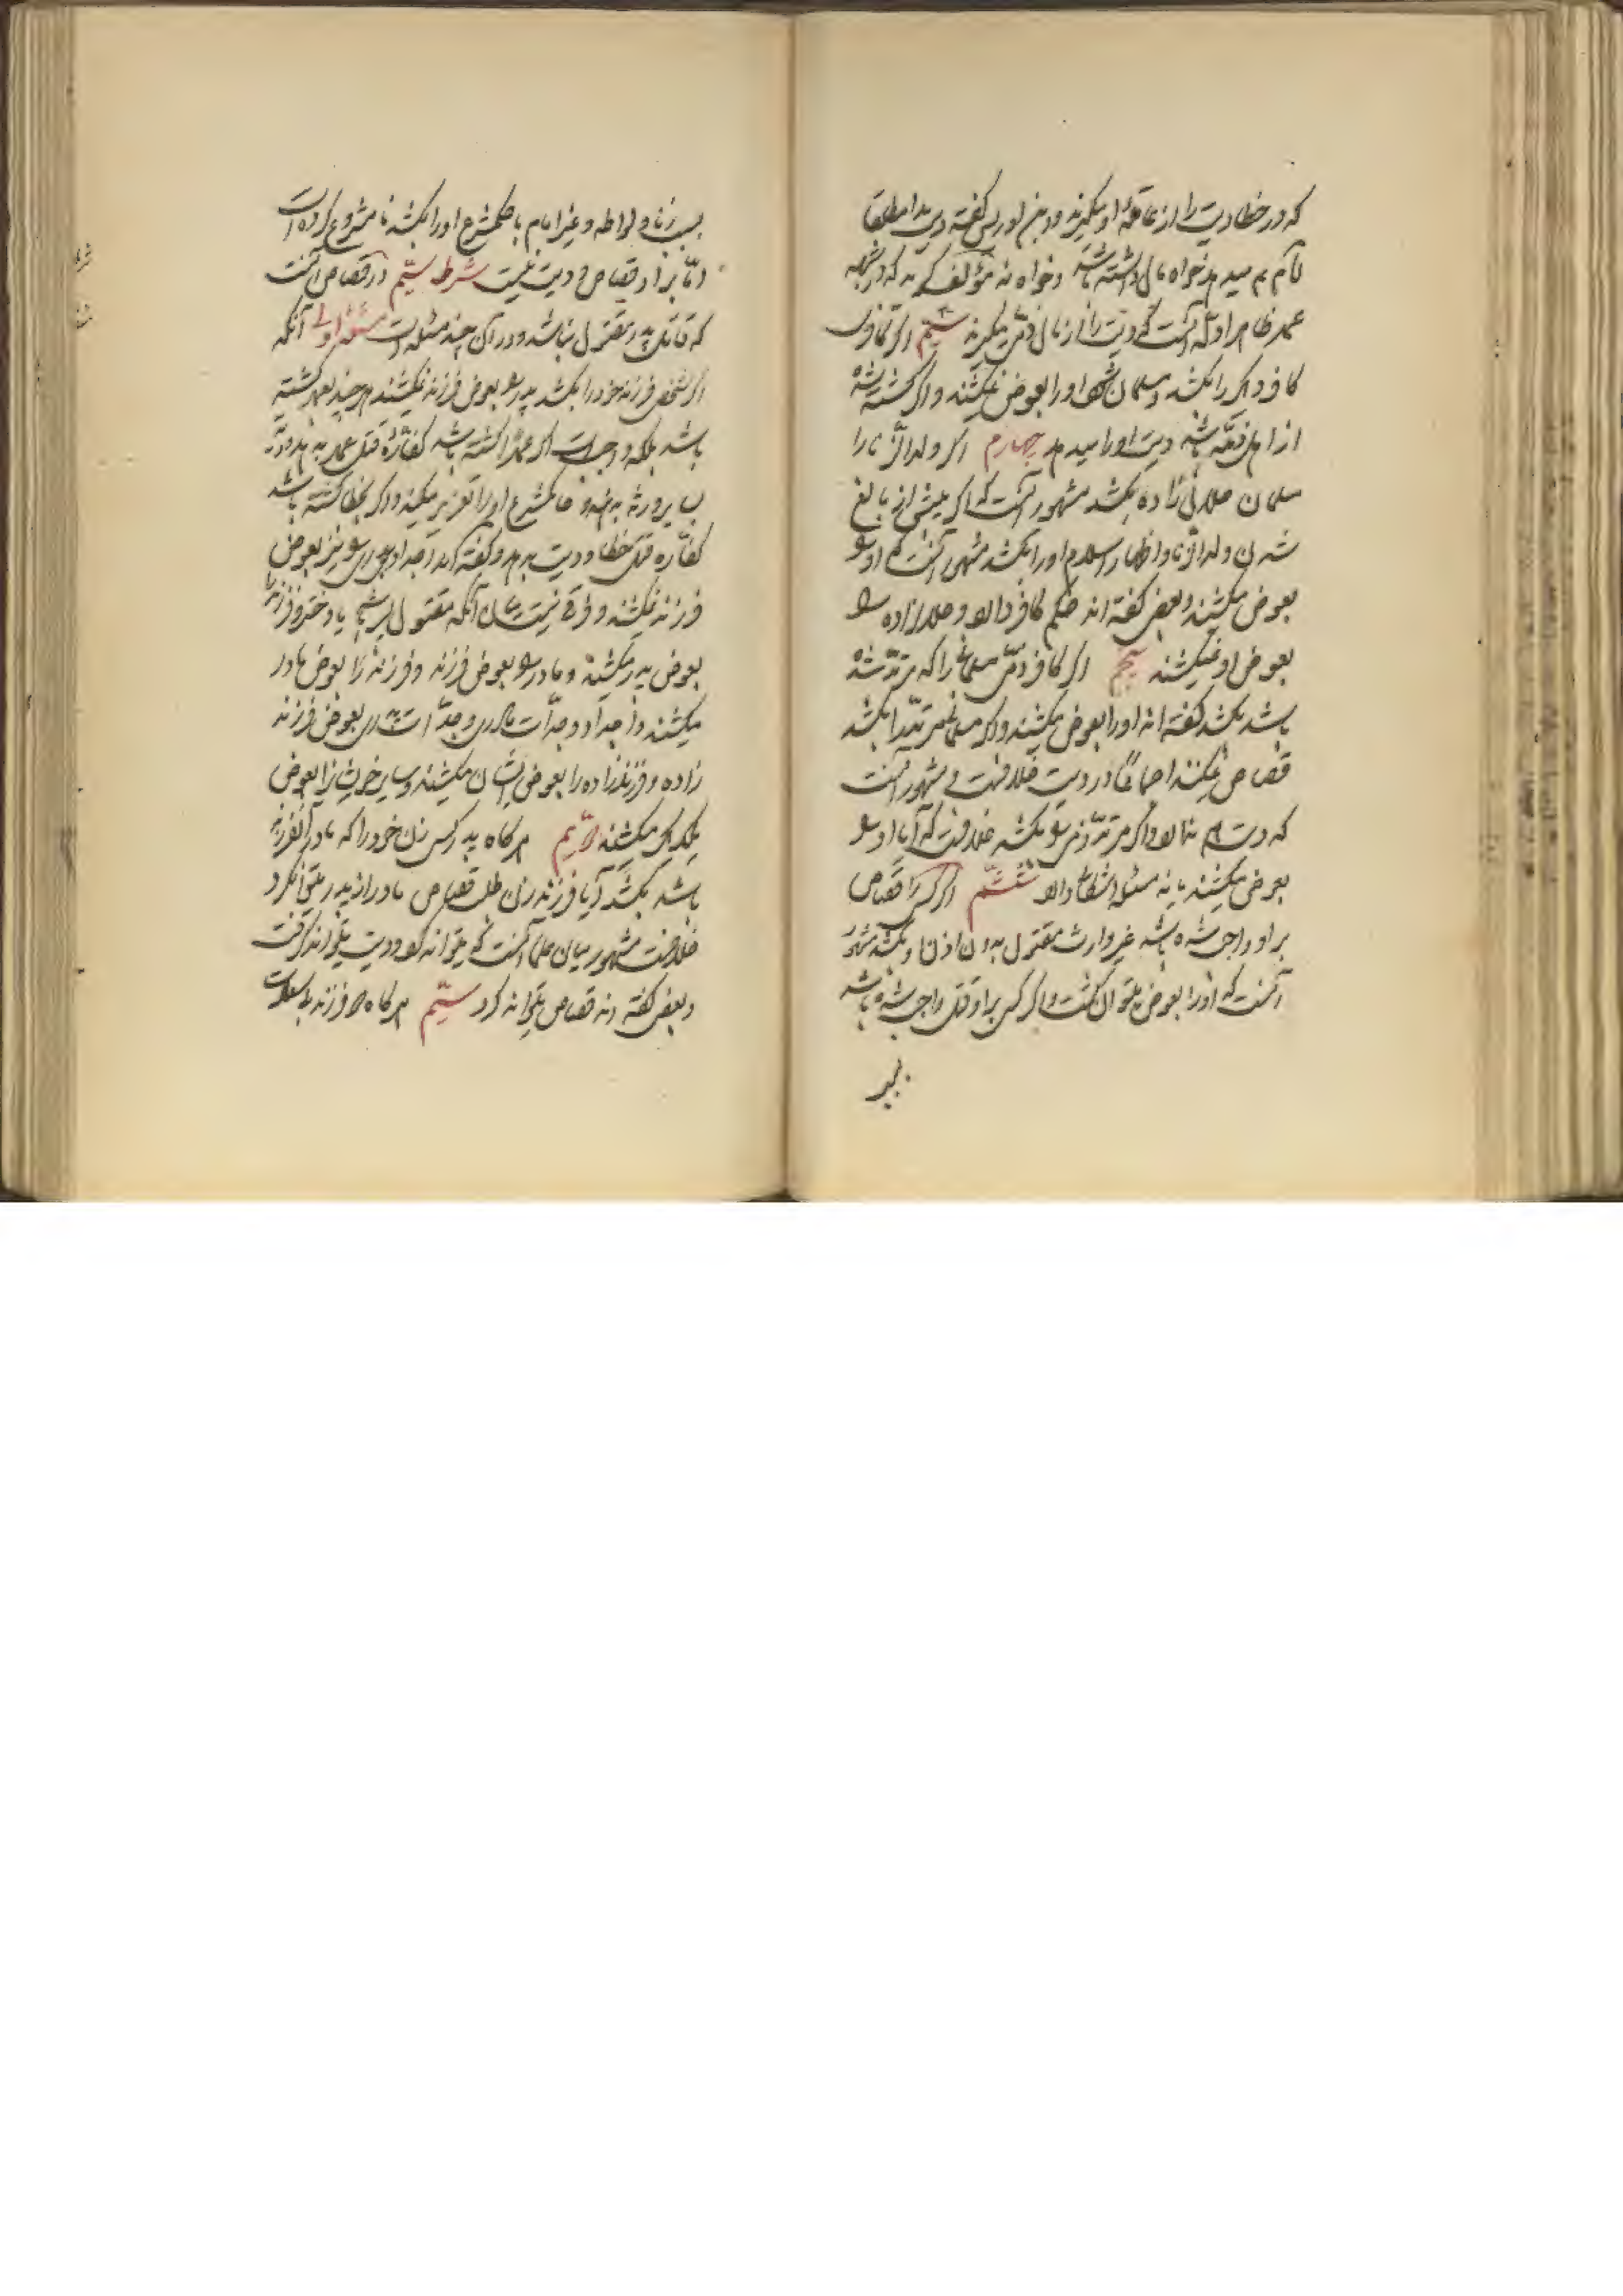 که در خطا دیت را از عاقلهٔ او میگیرند و ابن ادریس گفته دیت را مطلقا
امام میدهد خواه مال داشته باشد و خواه نه مؤلف گوید که در
عمد ظاهر ادله آنست که دیت را از مال ذمی میگیرند سیم اگر کافری
کافر دیگر را بکشد و مسلمان شود او را بعوض نمیکشند و اگر کشته شده
از اهل ذمه باشد دیت او را میدهد چهارم اگر ولد الزنا را
مسلمان حلال زاده بکشد مشهور آنست که اگر پیش از بالغ
شدن ولد الزنا و اظهار اسلام او را بکشد مشهور آنست که او را
بعوض میکشند و بعضی گفته اند حکم کافر دارد و حلال زاده را
بعوض او نمیکشند پنجم اگر کافر ذمی مسلمانی را که مرتد شده
باشد بکشد گفته اند او را بعوض میکشند و اگر مسلمانی مرتد را بکشد
قصاص نمیکنند اجماعا و در دیت خلافست و مشهور آنست
که دیت هم ندارد و اگر مرتد ذمی را بکشد خلافست که آیا او را
بعوض میکشند یا نه مسئله اشکالی دارد ششم اگر کسی را قصاص
بر او واجب شده باشد غیر وارث مقتول بدون اذن او بکشد مشهور
آنست که او را بعوض میتوان کشت و اگر کسی بر او قتل واجب شده باشد
بسبب زنا و لواطه و غیر امام یا حاکم شرع او را بکشد نامشروع کرده است
اما بر او قصاص و دیت نیست شرط سیم در قصاص آنست
که قاتل پدر مقتول نباشد و در آن چند مسئله است مسئله اولی آنکه
اگر شخصی فرزند خود را بکشد پدر را بعوض فرزند نمیکشند هر چند بعمد کشته
باشد بلکه واجبست اگر عمدا کشته باشد کفاره قتل عمد بدهد و دیت
بباقی ورثه بدهد و حاکم شرع او را تعزیر میکند و اگر بخطا کشته باشد
کفاره قتل خطا و دیت بدهد و گفته اند اجداد پدری را نیز بعوض
فرزند نمیکشند و فرقی نیست میان آنکه مقتول پسر باشد یا دختر و فرزند را
بعوض پدر میکشند و مادر را بعوض فرزند و فرزند را بعوض مادر
میکشند و اجداد و جدات مادری و جدات پدری بعوض فرزند
زاده و فرزند زاده را بعوض ایشان میکشند و سایر خویشان را بعوض
یکدیگر میکشند دویم هر گاه پدر کسی زن خود را که مادر آن فرزند
باشد بکشد آیا فرزند زن طلب قصاص مادر از پدر میتواند کرد
خلافست مشهور میان علما آنست که نمیتواند کرد و دیت میتواند گرفت
و بعضی گفته اند قصاص میتواند کرد سیم هر گاه دو فرزند